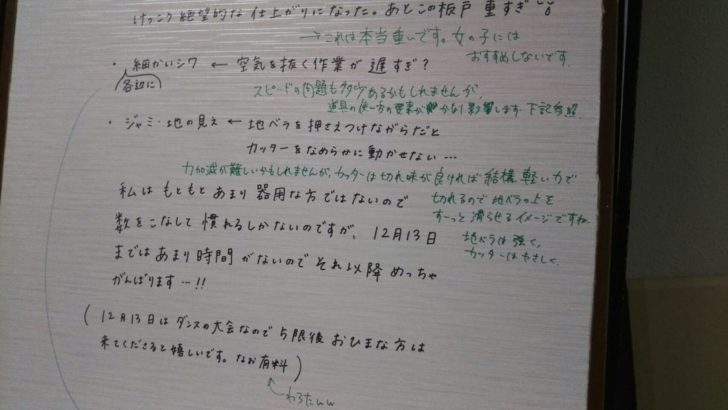 けっこう絶望的な仕上がりになった。あとこの板戸 重すぎ
→これは本当重いです。女の子には
おすすめしないです
・細かいシワ ← 空気を抜く作業が遅すぎ？
(各辺に)
スピードの問題も多少あるかもしれませんが、
道具の使い方の要素がかなり影響します 下記参照
・ジャミ・地の見え ← 地ベラを押さえつけながらだと
カッターをなめらかに動かせない…
力加減が難しいかもしれませんが、カッターは切れ味が良ければ結構軽い力で
切れるので地ベラの上を
すーっと滑らせるイメージですね
地ベラは強く、
カッターはやさしく
私はもともとあまり器用な方ではないので
数をこなして慣れるしかないのですが、12月13日
まではあまり時間がないのでそれ以降めっちゃ
がんばります…!!
(12月13日はダンスの大会なので5限後おひまな方は
来てくださると嬉しいです。なお有料)
わろたww